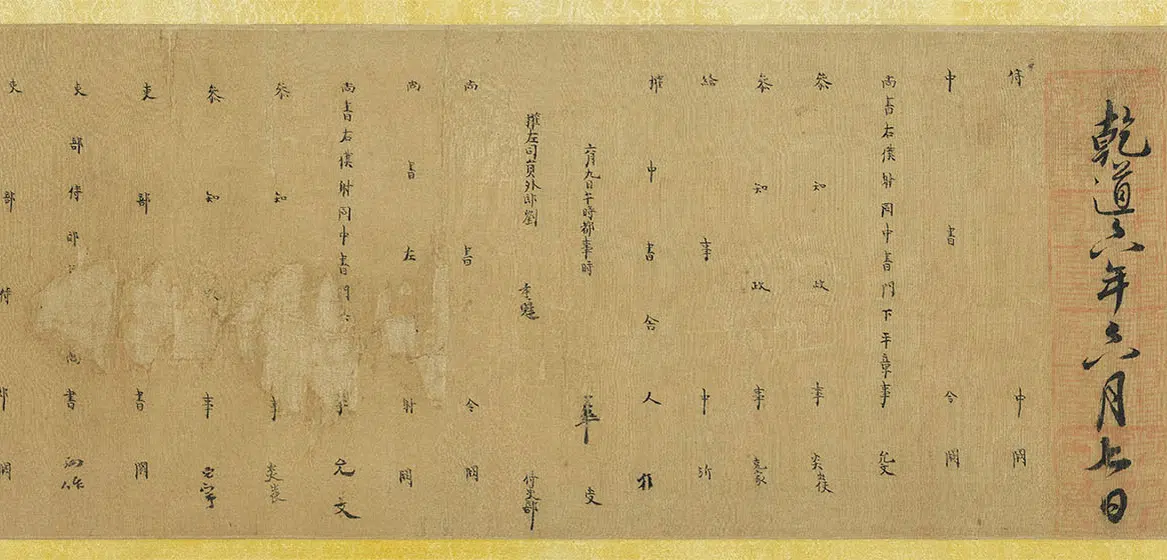 乾道六年六月七日
侍中闕
中書令闕
尚書右僕射同中書門下平章事允文
參知政事炎出使
參知政事克家
給事中沂
權中書舍人
六月九日午時都事時受
權左司員外郎劉孝韙付吏部
尚書令闕
尚書左僕射闕
尚書右僕射同中書門事允文
參知事炎
參知政事
吏部書闕
吏部侍郎尚書
吏部侍郎闕